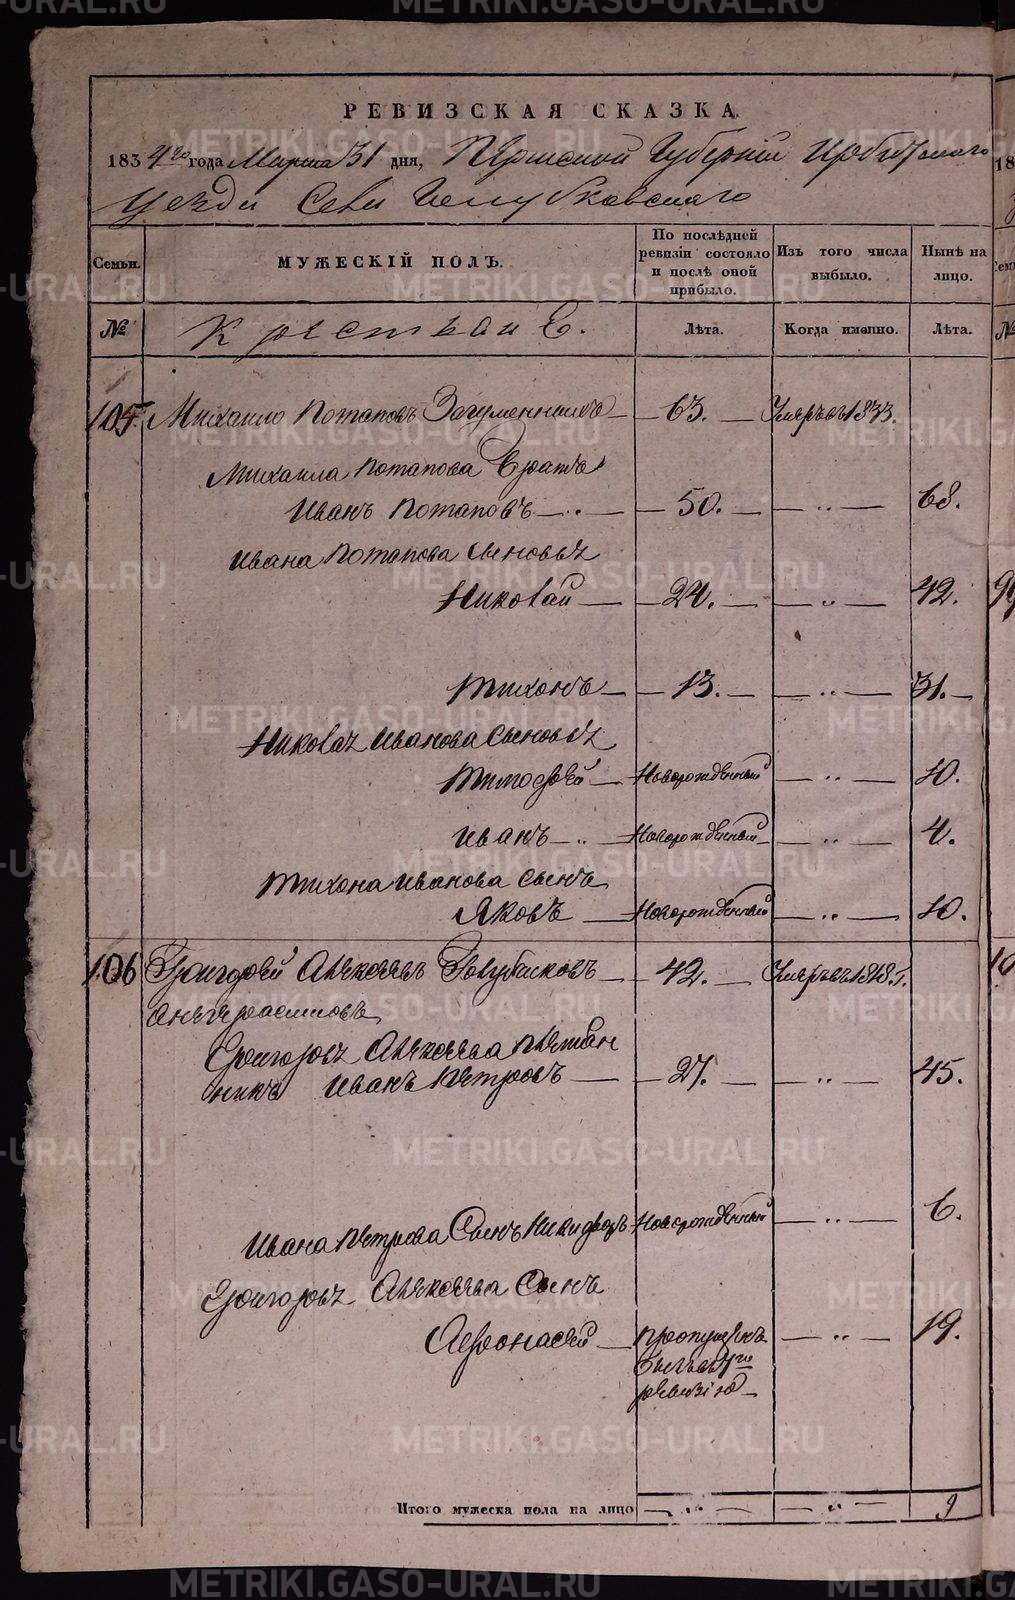 METRIKI.GASO-URAL.RU
РЕВИЗСКАЯ СКАЗКА.
1834го года Марта 31 дня, Пермской Губернии Ирбитскаго
Уезда Села
Семьи. МУЖЕСКІЙ ПОЛЪ. По послѣдней ревизіи состояло и послѣ оной прибыло. Изъ того числа выбыло. Нынѣ на лицо.
№ Крестьяне. Лѣта. Когда именно. Лѣта.
105. Михаило Потаповъ — 63. — Умеръ въ 1833.
Михаила Потапова Братъ
Иванъ Потаповъ — 50. — — „ — 68.
Ивана Потапова Сыновья
Николай — 24. — — „ — 42.
Тихонъ — 13. — — „ — 31.
Николая Иванова Сыновья
Тимофей Новорожденный — „ — 10.
Иванъ Новорожденный — „ — 4.
Тихона Иванова Сынъ
Яковъ — Новорожденный — „ — 10.
106 Григорей Алексеевъ Голубчиковъ — 42. — Умеръ въ 1818. г.
Григорья Алексеева Племян
никъ Иванъ Петровъ — 27. — — „ — 45.
Ивана Петрова Сынъ Никифоръ Новорожденный — „ — 6.
Григорья Алексеева Сынъ
Афонасей — пропущенъ — „ — 19.
ревизію
Итого мужеска пола на лицо — „ — — „ — 9